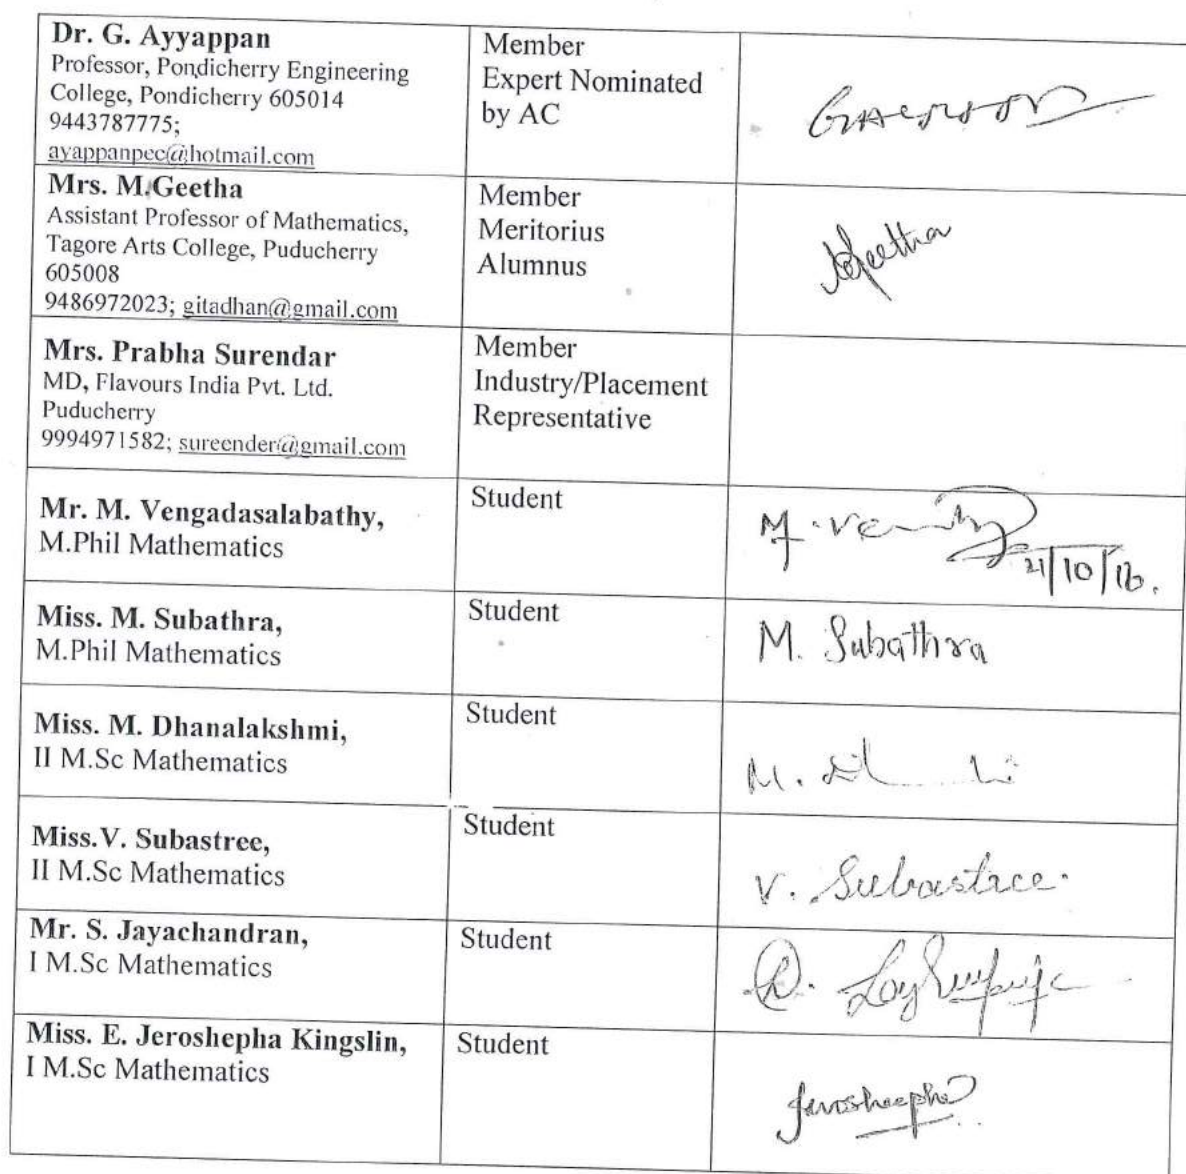 Dr. G. Ayyappan
Professor, Pondicherry Engineering
College, Pondicherry 605014
9443787775;
ayappanpec@hotmail.com
Member
Expert Nominated
by AC
Mrs. M.Geetha
Assistant Professor of Mathematics,
Tagore Arts College, Puducherry
605008
9486972023; gitadhan@gmail.com
Member
Meritorius
Alumnus
Geetha
Mrs. Prabha Surendar
MD, Flavours India Pvt. Ltd.
Puducherry
9994971582; sureender@gmail.com
Member
Industry/Placement
Representative
Mr. M. Vengadasalabathy,
M.Phil Mathematics
Student
21/10/16.
Miss. M. Subathra,
M.Phil Mathematics
Student
M. Subathra
Miss. M. Dhanalakshmi,
II M.Sc Mathematics
Student
Miss.V. Subastree,
II M.Sc Mathematics
Student
V. Subastree.
Mr. S. Jayachandran,
I M.Sc Mathematics
Student
Miss. E. Jeroshepha Kingslin,
I M.Sc Mathematics
Student